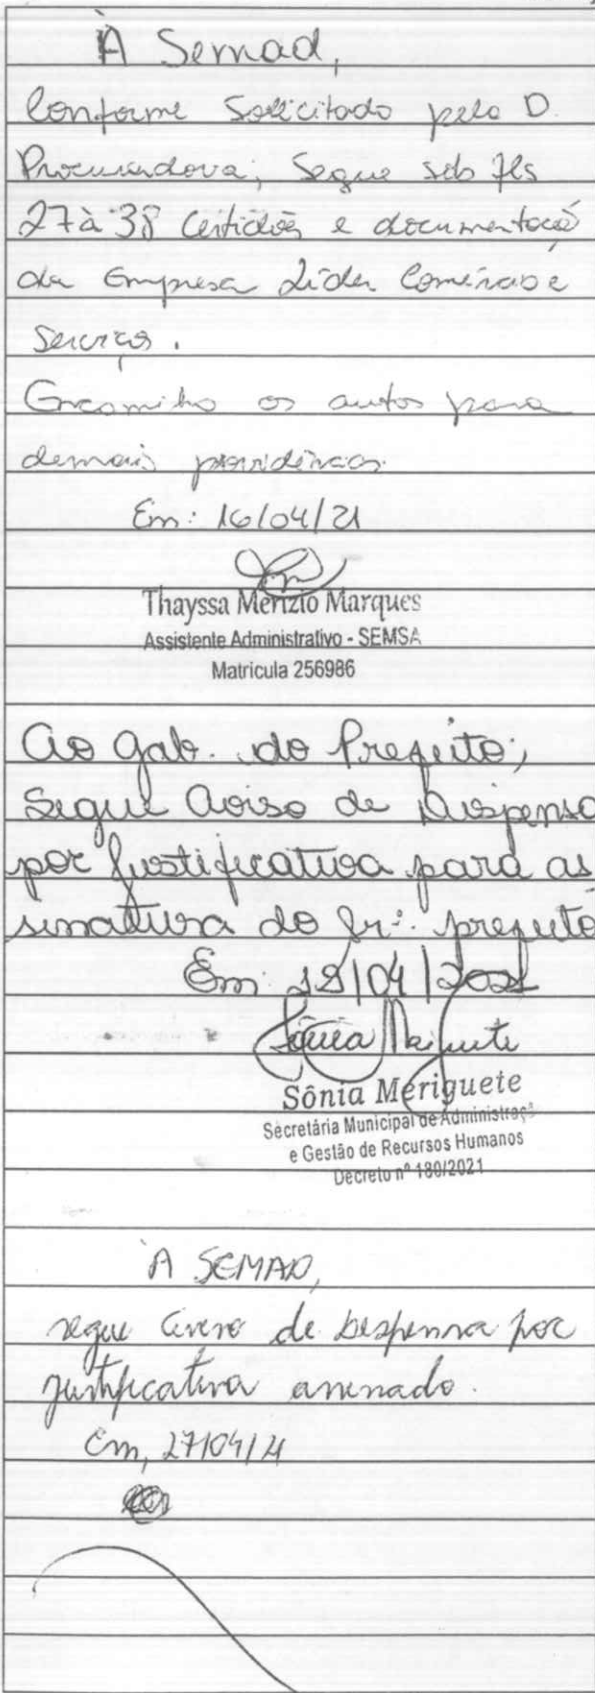 À Semad,
Conforme Solicitado pela D.
Procuradora, Segue sob fls
27 à 38 Certidões e documentação
da Empresa Líder Comércio e
Serviços.
Encaminho os autos para
demais providências.
Em: 16/04/21
Thayssa Merizio Marques
Assistente Administrativo - SEMSA
Matricula 256986
Ao Gab. do Prefeito;
Segue Aviso de Dispensa
por Justificativa para as
sinatura do Sr. prefeito
Em 19/04/2021
Sônia Meriguete
Sônia Meriguete
Secretária Municipal de Administraçã
e Gestão de Recursos Humanos
Decreto nº 180/2021
À SEMAD,
segue aviso de Dispensa por
justificativa assinado.
Em, 27/04/21